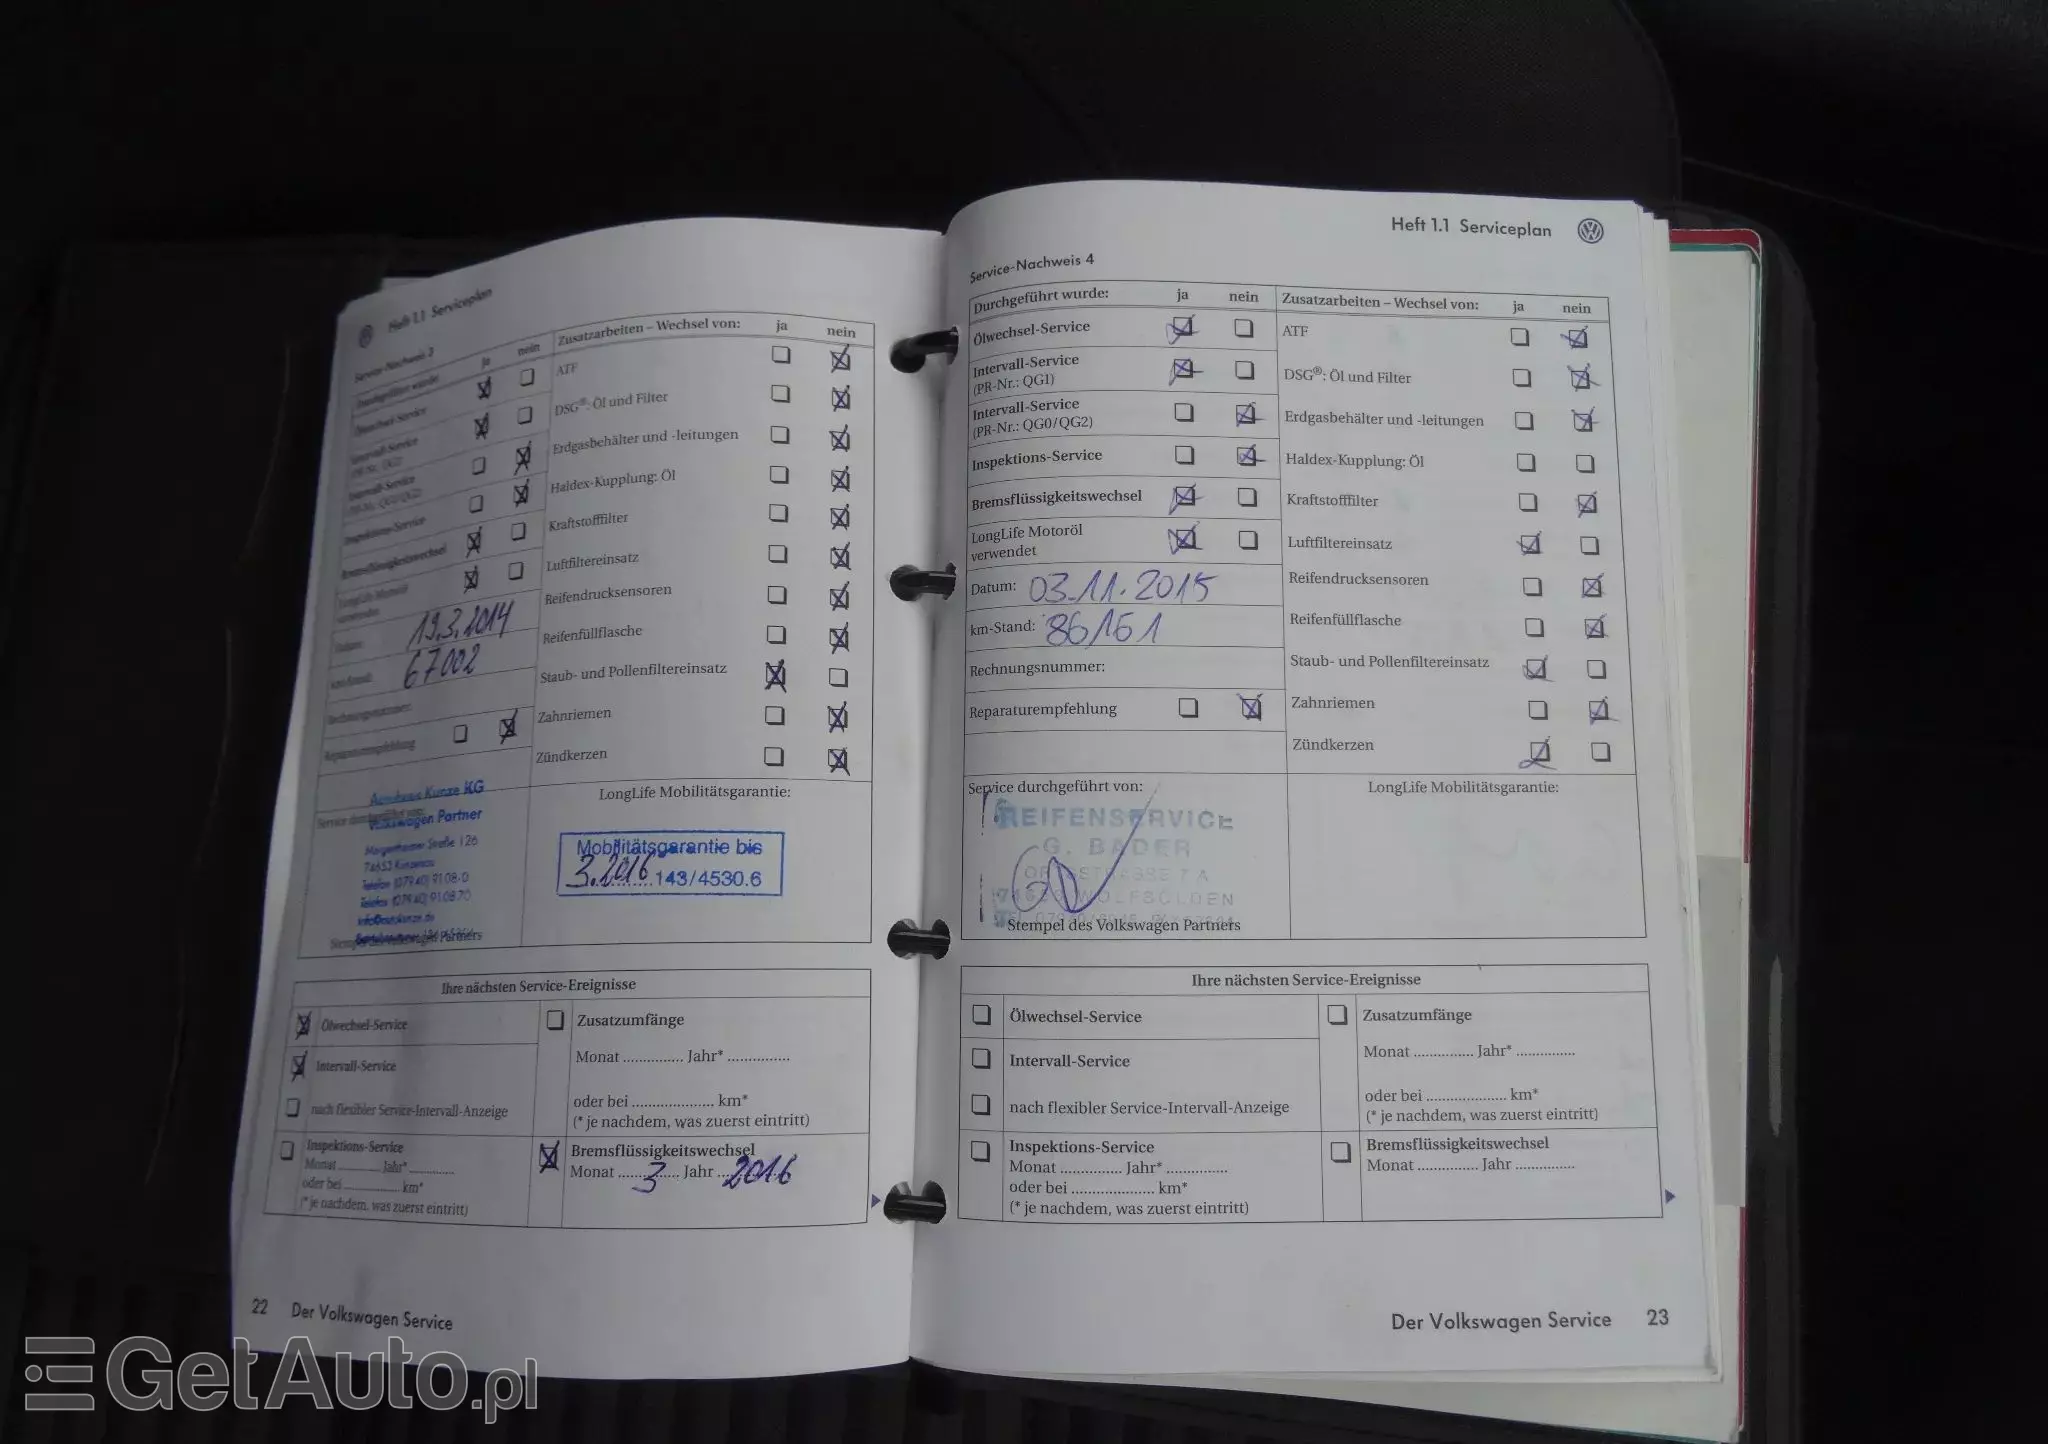 Heft 1.1 Serviceplan
Service-Nachweis 3
Durchgeführt wurde: ja nein
Ölwechsel-Service
Intervall-Service
(PR-Nr.: QG1)
Intervall-Service
(PR-Nr.: QG0/QG2)
Inspektions-Service
Bremsflüssigkeitswechsel
LongLife Motoröl
verwendet
Datum: 19.3.2014
km-Stand: 67002
Rechnungsnummer:
Reparaturempfehlung
Zusatzarbeiten – Wechsel von: ja nein
ATF
DSG®: Öl und Filter
Erdgasbehälter und -leitungen
Haldex-Kupplung: Öl
Kraftstofffilter
Luftfiltereinsatz
Reifendrucksensoren
Reifenfüllflasche
Staub- und Pollenfiltereinsatz
Zahnriemen
Zündkerzen
Service durchgeführt von:
Autohaus Kunze KG
Volkswagen Partner
Mergentheimer Straße 126
74653 Künzelsau
Telefon (07940) 9108-0
Telefax (07940) 9108-70
info@autokunze.de
Stempel des Volkswagen Partners
LongLife Mobilitätsgarantie:
Mobilitätsgarantie bis
3.2016 143/4530.6
Ihre nächsten Service-Ereignisse
Ölwechsel-Service
Intervall-Service
nach flexibler Service-Intervall-Anzeige
Inspektions-Service
Monat ............ Jahr* ............
oder bei ............ km*
(* je nachdem, was zuerst eintritt)
Zusatzumfänge
Monat ............... Jahr* ...............
oder bei .................... km*
(* je nachdem, was zuerst eintritt)
Bremsflüssigkeitswechsel
Monat 3 Jahr 2016
22 Der Volkswagen Service
Heft 1.1 Serviceplan
Service-Nachweis 4
Durchgeführt wurde: ja nein
Ölwechsel-Service
Intervall-Service
(PR-Nr.: QG1)
Intervall-Service
(PR-Nr.: QG0/QG2)
Inspektions-Service
Bremsflüssigkeitswechsel
LongLife Motoröl
verwendet
Datum: 03.11.2015
km-Stand: 86161
Rechnungsnummer:
Reparaturempfehlung
Zusatzarbeiten – Wechsel von: ja nein
ATF
DSG®: Öl und Filter
Erdgasbehälter und -leitungen
Haldex-Kupplung: Öl
Kraftstofffilter
Luftfiltereinsatz
Reifendrucksensoren
Reifenfüllflasche
Staub- und Pollenfiltereinsatz
Zahnriemen
Zündkerzen
Service durchgeführt von:
REIFENSERVICE
G. BADER
WOLFSÖLDEN
Stempel des Volkswagen Partners
LongLife Mobilitätsgarantie:
Ihre nächsten Service-Ereignisse
Ölwechsel-Service
Intervall-Service
nach flexibler Service-Intervall-Anzeige
Inspektions-Service
Monat ............... Jahr* ...............
oder bei .................... km*
(* je nachdem, was zuerst eintritt)
Zusatzumfänge
Monat ............... Jahr* ...............
oder bei .................... km*
(* je nachdem, was zuerst eintritt)
Bremsflüssigkeitswechsel
Monat ............... Jahr ...............
Der Volkswagen Service 23
GetAuto.pl